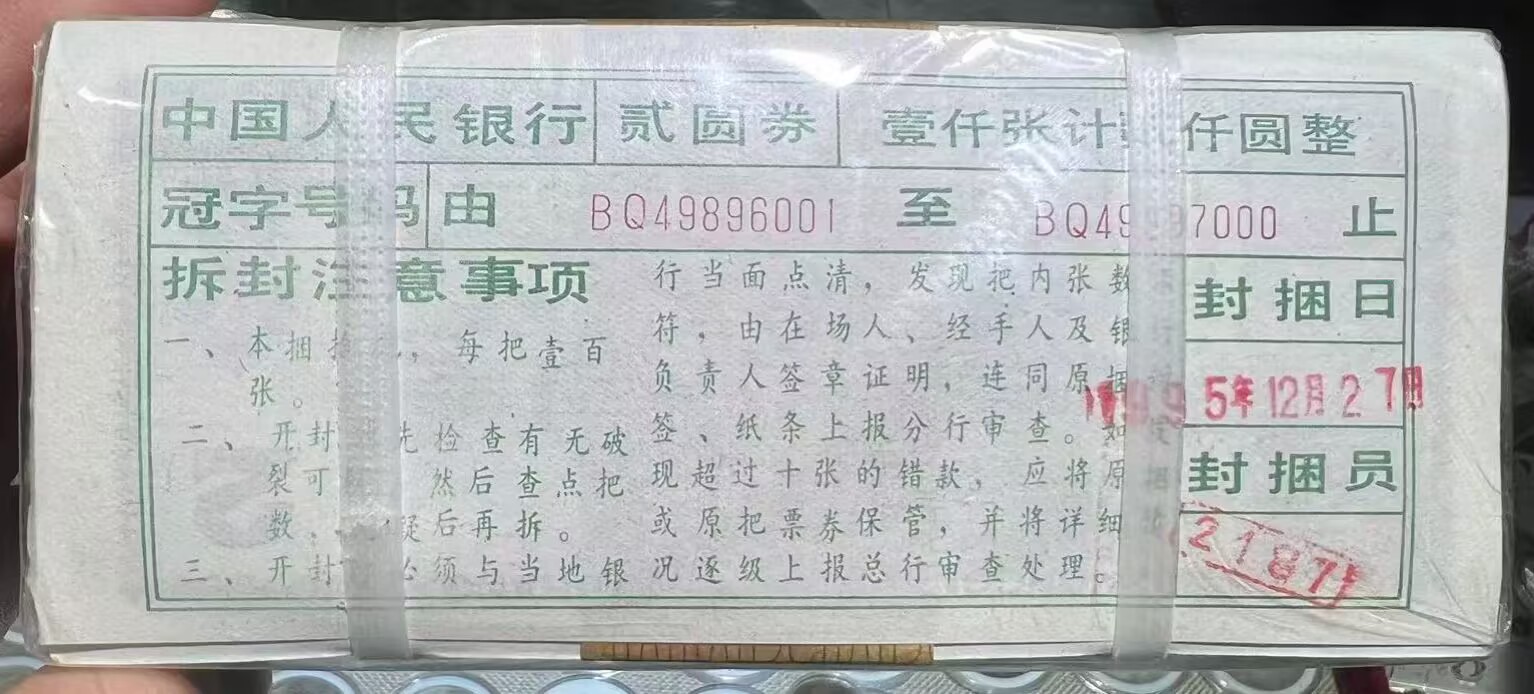 中国人民银行 贰圆券 壹仟张计 仟圆整
冠字号码 由 BQ49896001 至 BQ49 97000 止
拆封注意事项
一、本捆 ，每把壹百
张。
二、开封 先检查有无破
裂可 然后查点把
数， 疑后再拆。
三、开封 必须与当地银
行当面点清，发现把内张数
符，由在场人、经手人及银
负责人签章证明，连同原捆
签、纸条上报分行审查。如
现超过十张的错款，应将原
或原把票券保管，并将详细
况逐级上报总行审查处理。
封捆日
5年12月27日
封捆员
2187